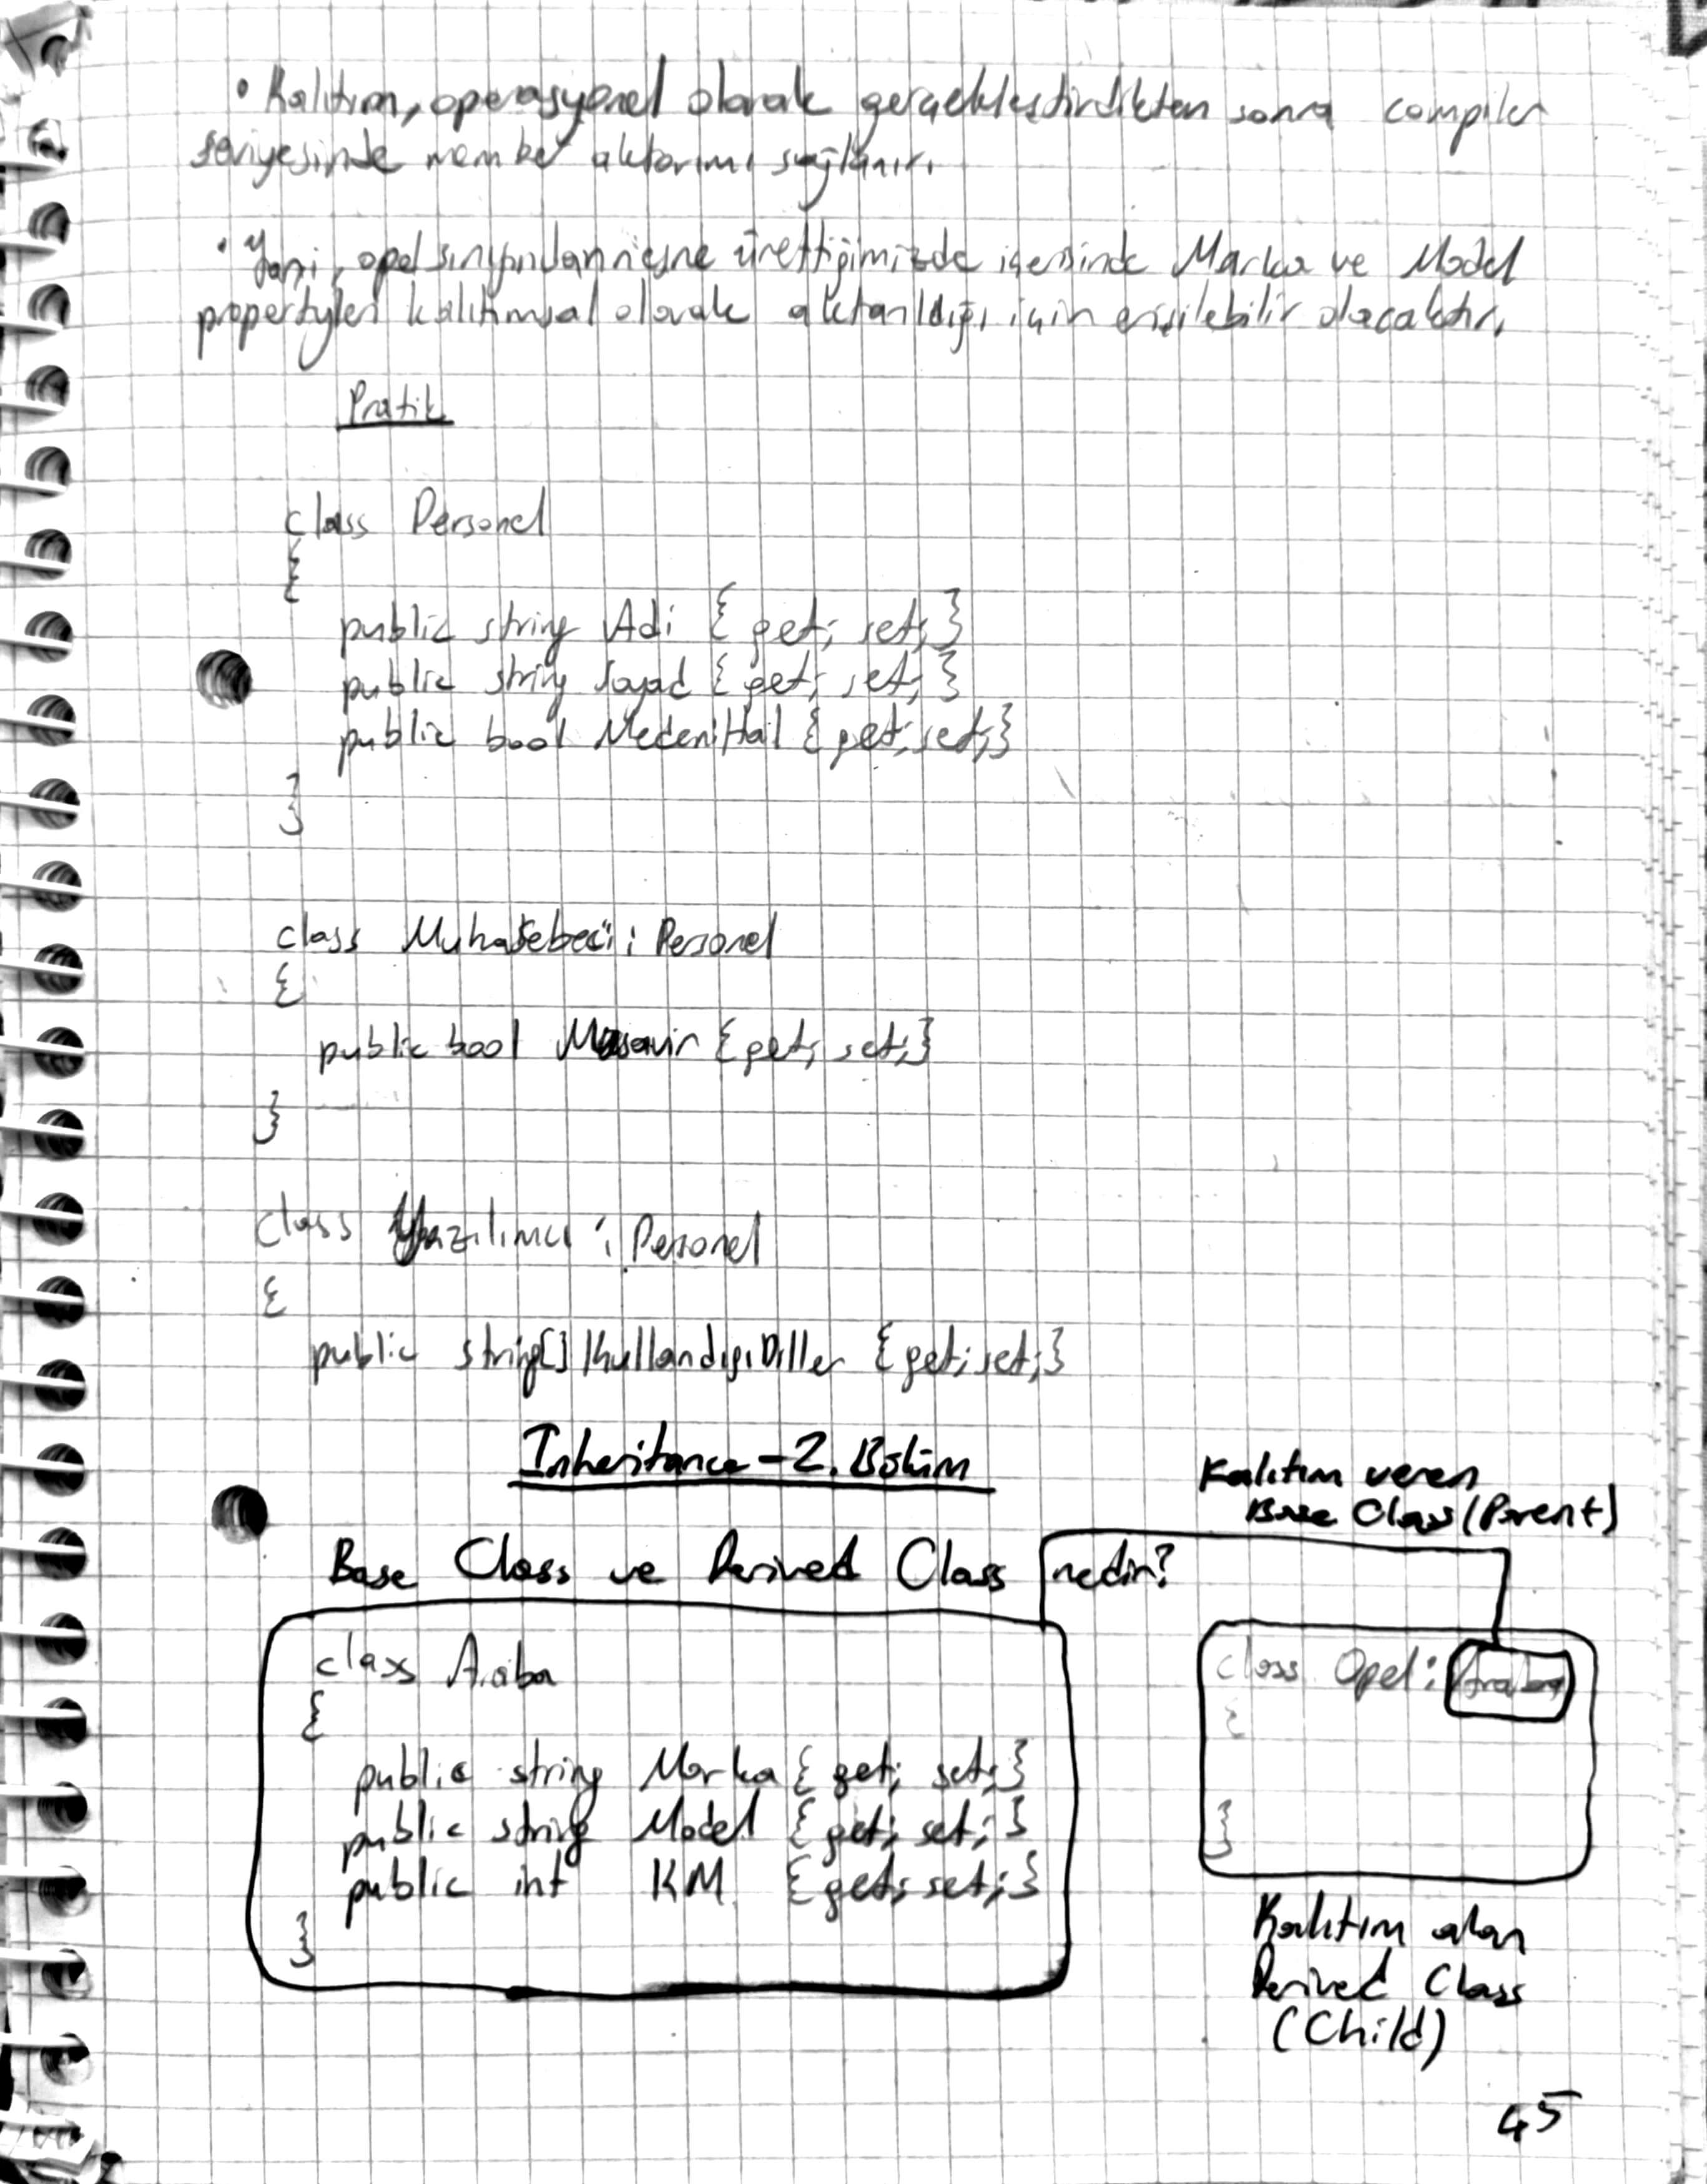 • Kalıtım, operasyonel olarak gerçekleştirdikten sonra compiler
seviyesinde member aktarımı sağlanır.
• Yani, opel sınıfından nesne ürettiğimizde içerisinde Marka ve Model
propertyleri kalıtımsal olarak aktarıldığı için erişilebilir olacaktır.
Pratik
class Personel
{
public string Adi { get; set; }
public string Soyad { get; set; }
public bool MedeniHal { get; set; }
}
class Muhasebeci : Personel
{
public bool Musavir { get; set; }
}
class Yazilimci : Personel
{
public string[] KullandigiDiller { get; set; }
Inheritance - 2. Bölüm
Kalıtım veren
Base Class (Parent)
Base Class ve Derived Class nedir?
class Araba
{
public string Marka { get; set; }
public string Model { get; set; }
public int KM { get; set; }
}
class Opel : Araba
{
}
Kalıtım alan
Derived Class
(Child)
45